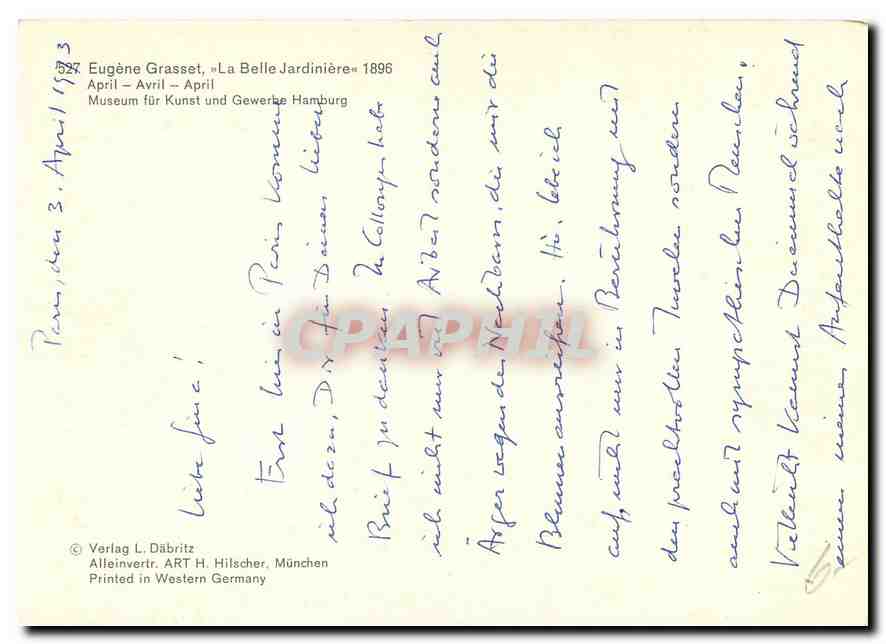 527 Eugène Grasset, »La Belle Jardinière« 1896
April – Avril – April
Museum für Kunst und Gewerbe Hamburg
Paris, den 3. April 1973
Liebe Gina!
Erst hier in Paris komme
ich dazu, Dir für Deinen lieben
Brief zu danken. In Collonges habe
ich nicht nur viel Arbeit sondern auch
Ärger wegen der Nachbarn, die mir die
Blumen ausreißen. Hier lebe ich
auf, nicht nur in Berührung mit
den prachtvollen sondern
auch mit sympathischen Menschen.
Vielleicht kannst Du einmal während
einem meiner Aufenthalte nach
© Verlag L. Däbritz
Alleinvertr. ART H. Hilscher, München
Printed in Western Germany
CPAPHIL